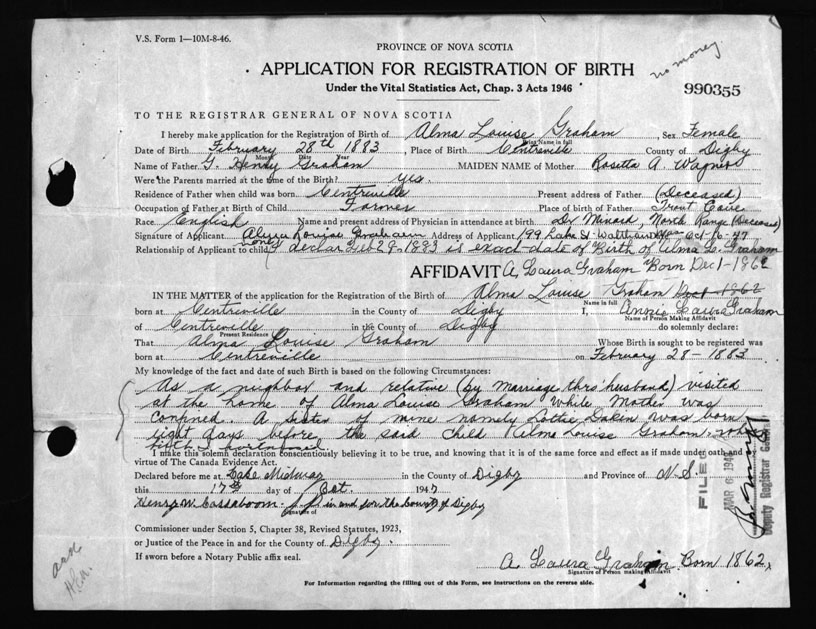 V.S. Form 1—10M-8-46.
PROVINCE OF NOVA SCOTIA
no money
APPLICATION FOR REGISTRATION OF BIRTH
Under the Vital Statistics Act, Chap. 3 Acts 1946
990355
TO THE REGISTRAR GENERAL OF NOVA SCOTIA
I hereby make application for the Registration of Birth of Alma Louise Graham, Sex Female
Being Name in full
Date of Birth February 28th 1883, Place of Birth Centreville County of Digby
Month Date Year
Name of Father G. Henry Graham MAIDEN NAME of Mother Rosetta A. Wagner
Were the Parents married at the time of the Birth? Yes.
Residence of Father when child was born Centreville Present address of Father (Deceased)
Occupation of Father at Birth of Child Farmer Place of birth of Father Trout Cove
Race English Name and present address of Physician in attendance at birth Dr Minard, North Range (Deceased)
Signature of Applicant Alma Louise Graham Address of Applicant 199 Lake St. Waltham Mass Oct-16-47
Relationship of Applicant to child I declar Feb 28-1883 is exact date of Birth of Alma L. Graham
AFFIDAVIT A. Laura Graham Born Dec 1-1862
IN THE MATTER of the application for the Registration of Birth of Alma Louise Graham 1862
Name in full
born at Centreville in the County of Digby I, Annie Laura Graham
Name of Person Making Affidavit
of Centreville in the County of Digby do solemnly declare:
Present Residence
That Alma Louise Graham Whose Birth is sought to be registered was
born at Centreville on February 28-1883
My knowledge of the fact and date of such Birth is based on the following Circumstances:
As a neighbor and relative (by marriage thro husband) visited
at the home of Alma Louise Graham while Mother was
confined. A sister of mine namely Lottie Dakin was born
eight days before the said child Alma Louise Graham
birth
I make this solemn declaration conscientiously believing it to be true, and knowing that it is of the same force and effect as if made under oath and by
virtue of The Canada Evidence Act.
Declared before me at Lake Midway in the County of Digby and Province of N.S.
this 17th day of Oct. 1947
Henry W. Cossaboom J.P. in and for the County of Digby
Signature of
Commissioner under Section 5, Chapter 38, Revised Statutes, 1923,
or Justice of the Peace in and for the County of Digby.
If sworn before a Notary Public affix seal.
A. Laura Graham Born 1862
Signature of Person making Affidavit
For Information regarding the filling out of this Form, see instructions on the reverse side.
FILED
MAR 6 194
Deputy Registrar General